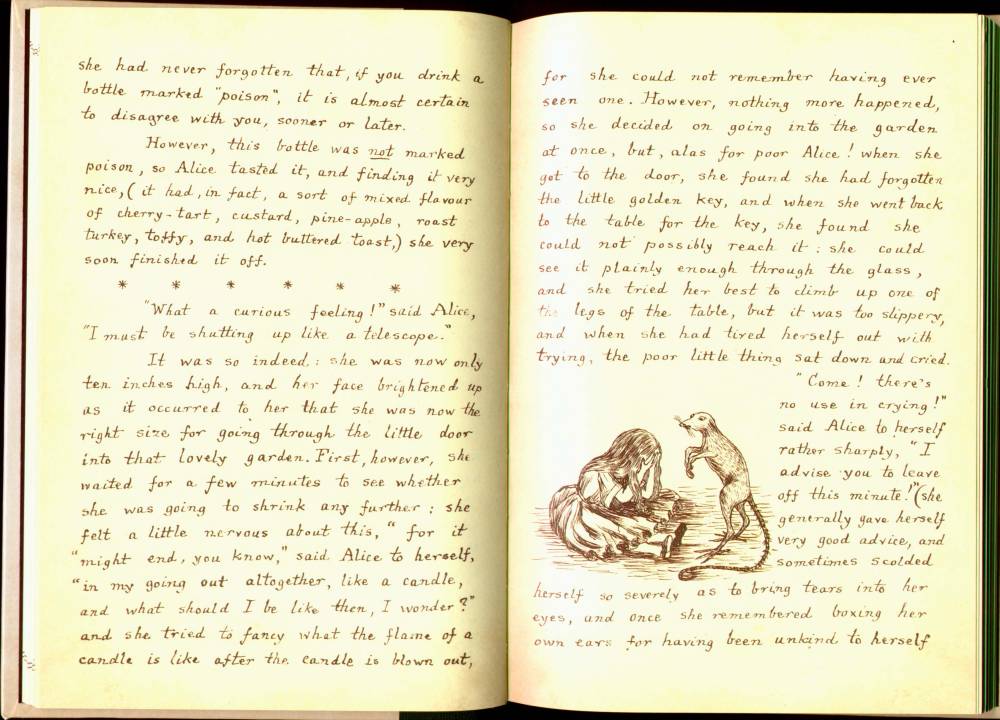 she had never forgotten that, if you drink a
bottle marked "poison", it is almost certain
to disagree with you, sooner or later.
However, this bottle was not marked
poison, so Alice tasted it, and finding it very
nice, (it had, in fact, a sort of mixed flavour
of cherry-tart, custard, pine-apple, roast
turkey, toffy, and hot buttered toast,) she very
soon finished it off.
* * * * * *
"What a curious feeling!" said Alice,
"I must be shutting up like a telescope."
It was so indeed: she was now only
ten inches high, and her face brightened up
as it occurred to her that she was now the
right size for going through the little door
into that lovely garden. First, however, she
waited for a few minutes to see whether
she was going to shrink any further: she
felt a little nervous about this, "for it
"might end, you know," said Alice to herself,
"in my going out altogether, like a candle,
and what should I be like then, I wonder?"
and she tried to fancy what the flame of a
candle is like after the candle is blown out,
for she could not remember having ever
seen one. However, nothing more happened,
so she decided on going into the garden
at once, but, alas for poor Alice! when she
got to the door, she found she had forgotten
the little golden key, and when she went back
to the table for the key, she found she
could not possibly reach it: she could
see it plainly enough through the glass,
and she tried her best to climb up one of
the legs of the table, but it was too slippery,
and when she had tired herself out with
trying, the poor little thing sat down and cried.
"Come! there's
no use in crying!"
said Alice to herself
rather sharply, "I
advise you to leave
off this minute!" (she
generally gave herself
very good advice, and
sometimes scolded
herself so severely as to bring tears into her
eyes, and once she remembered boxing her
own ears for having been unkind to herself